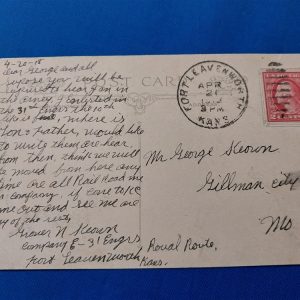 4-20-18
Dear George and all
suppose you will be
surprised to hear I am in
the army, I enlisted in
the 31st Engrs the 10th
where is
Father, would like
to write them are hear
from them, think we will
be moved from here any
time are all Rail Road men
in Company, if care to
me out and see me are
of the rest
Grover N Keown
Company E-31 Engrs
Fort Leavenworth
Kans.
POST CARD
FORT LEAVENWORTH
APR
21
3 PM
KANS.
Mr George Keown
Gillman City
Rural Route,
Mo